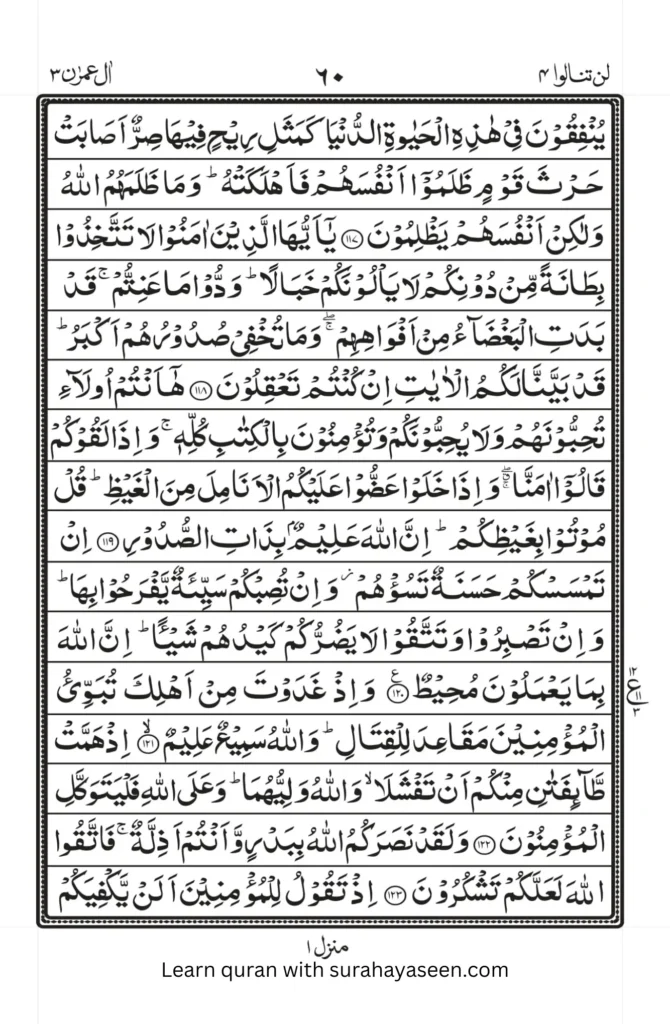 لن تنالوا ۴ ٦٠ اٰل عمرٰن ۳
يُنْفِقُوْنَ فِىْ هٰذِهِ الْحَيٰوةِ الدُّنْيَا كَمَثَلِ رِيْحٍ فِيْهَا صِرٌّ اَصَابَتْ
حَرْثَ قَوْمٍ ظَلَمُوْۤا اَنْفُسَهُمْ فَاَهْلَكَتْهُ ؕ وَمَا ظَلَمَهُمُ اللّٰهُ
وَلٰكِنْ اَنْفُسَهُمْ يَظْلِمُوْنَ ۝۱۱۷ يٰۤاَيُّهَا الَّذِيْنَ اٰمَنُوْا لَا تَتَّخِذُوْا
بِطَانَةً مِّنْ دُوْنِكُمْ لَا يَاْلُوْنَكُمْ خَبَالًا ؕ وَدُّوْا مَا عَنِتُّمْ ۚ قَدْ
بَدَتِ الْبَغْضَآءُ مِنْ اَفْوَاهِهِمْ ۖۚ وَمَا تُخْفِىْ صُدُوْرُهُمْ اَكْبَرُ ؕ
قَدْ بَيَّنَّا لَكُمُ الْاٰيٰتِ اِنْ كُنْتُمْ تَعْقِلُوْنَ ۝۱۱۸ هٰۤاَنْتُمْ اُولَآءِ
تُحِبُّوْنَهُمْ وَلَا يُحِبُّوْنَكُمْ وَتُؤْمِنُوْنَ بِالْكِتٰبِ كُلِّهٖ ۚ وَاِذَا لَقُوْكُمْ
قَالُوْۤا اٰمَنَّا ۖۗۚ وَاِذَا خَلَوْا عَضُّوْا عَلَيْكُمُ الْاَنَامِلَ مِنَ الْغَيْظِ ؕ قُلْ
مُوْتُوْا بِغَيْظِكُمْ ؕ اِنَّ اللّٰهَ عَلِيْمٌۢ بِذَاتِ الصُّدُوْرِ ۝۱۱۹ اِنْ
تَمْسَسْكُمْ حَسَنَةٌ تَسُؤْهُمْ ز وَاِنْ تُصِبْكُمْ سَيِّئَةٌ يَّفْرَحُوْا بِهَا ؕ
وَاِنْ تَصْبِرُوْا وَتَتَّقُوْا لَا يَضُرُّكُمْ كَيْدُهُمْ شَيْـًٔا ؕ اِنَّ اللّٰهَ
بِمَا يَعْمَلُوْنَ مُحِيْطٌ ۝۱۲۰ ع وَاِذْ غَدَوْتَ مِنْ اَهْلِكَ تُبَوِّئُ
۱۲ ع ۱۱ ۳
الْمُؤْمِنِيْنَ مَقَاعِدَ لِلْقِتَالِ ؕ وَاللّٰهُ سَمِيْعٌ عَلِيْمٌ ۝۱۲۱ ۙ اِذْ هَمَّتْ
طَّآئِفَتٰنِ مِنْكُمْ اَنْ تَفْشَلَا ۙ وَاللّٰهُ وَلِيُّهُمَا ؕ وَعَلَى اللّٰهِ فَلْيَتَوَكَّلِ
الْمُؤْمِنُوْنَ ۝۱۲۲ وَلَقَدْ نَصَرَكُمُ اللّٰهُ بِبَدْرٍ وَّاَنْتُمْ اَذِلَّةٌ ۚ فَاتَّقُوا
اللّٰهَ لَعَلَّكُمْ تَشْكُرُوْنَ ۝۱۲۳ اِذْ تَقُوْلُ لِلْمُؤْمِنِيْنَ اَلَنْ يَّكْفِيَكُمْ
منزل ۱
Learn quran with surahayaseen.com